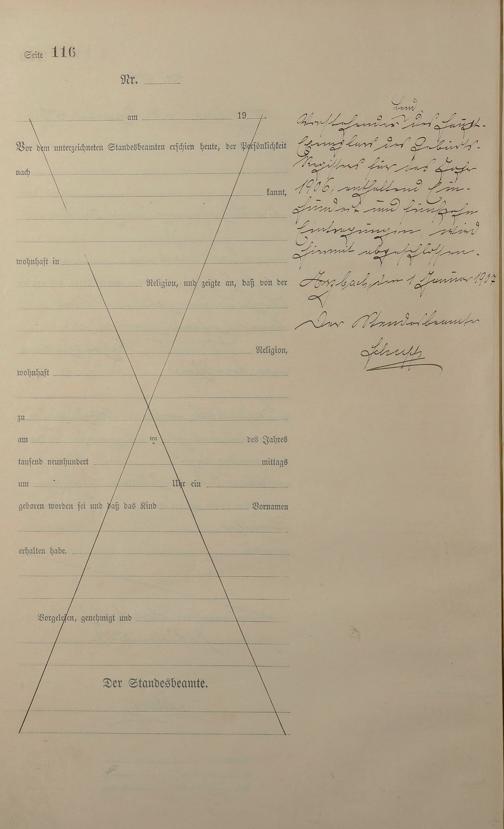 Seite 116
Nr.
am 19
Vor dem unterzeichneten Standesbeamten erschien heute, der Persönlichkeit
nach
kannt,
wohnhaft in
Religion, und zeigte an, daß von der
Religion,
wohnhaft
zu
am ten des Jahres
tausend neunhundert mittags
um Uhr ein
geboren worden sei und daß das Kind Vornamen
erhalten habe.
Vorgelesen, genehmigt und
Der Standesbeamte.
Vorstehendes des Haupt-
Exemplars des Geburts-
Registers für das Jahr
1906, enthaltend Ein-
hundert und fünfzehn
Eintragungen, wird
hiermit abgeschlossen.
den 1 Januar 1907
Der Standesbeamte